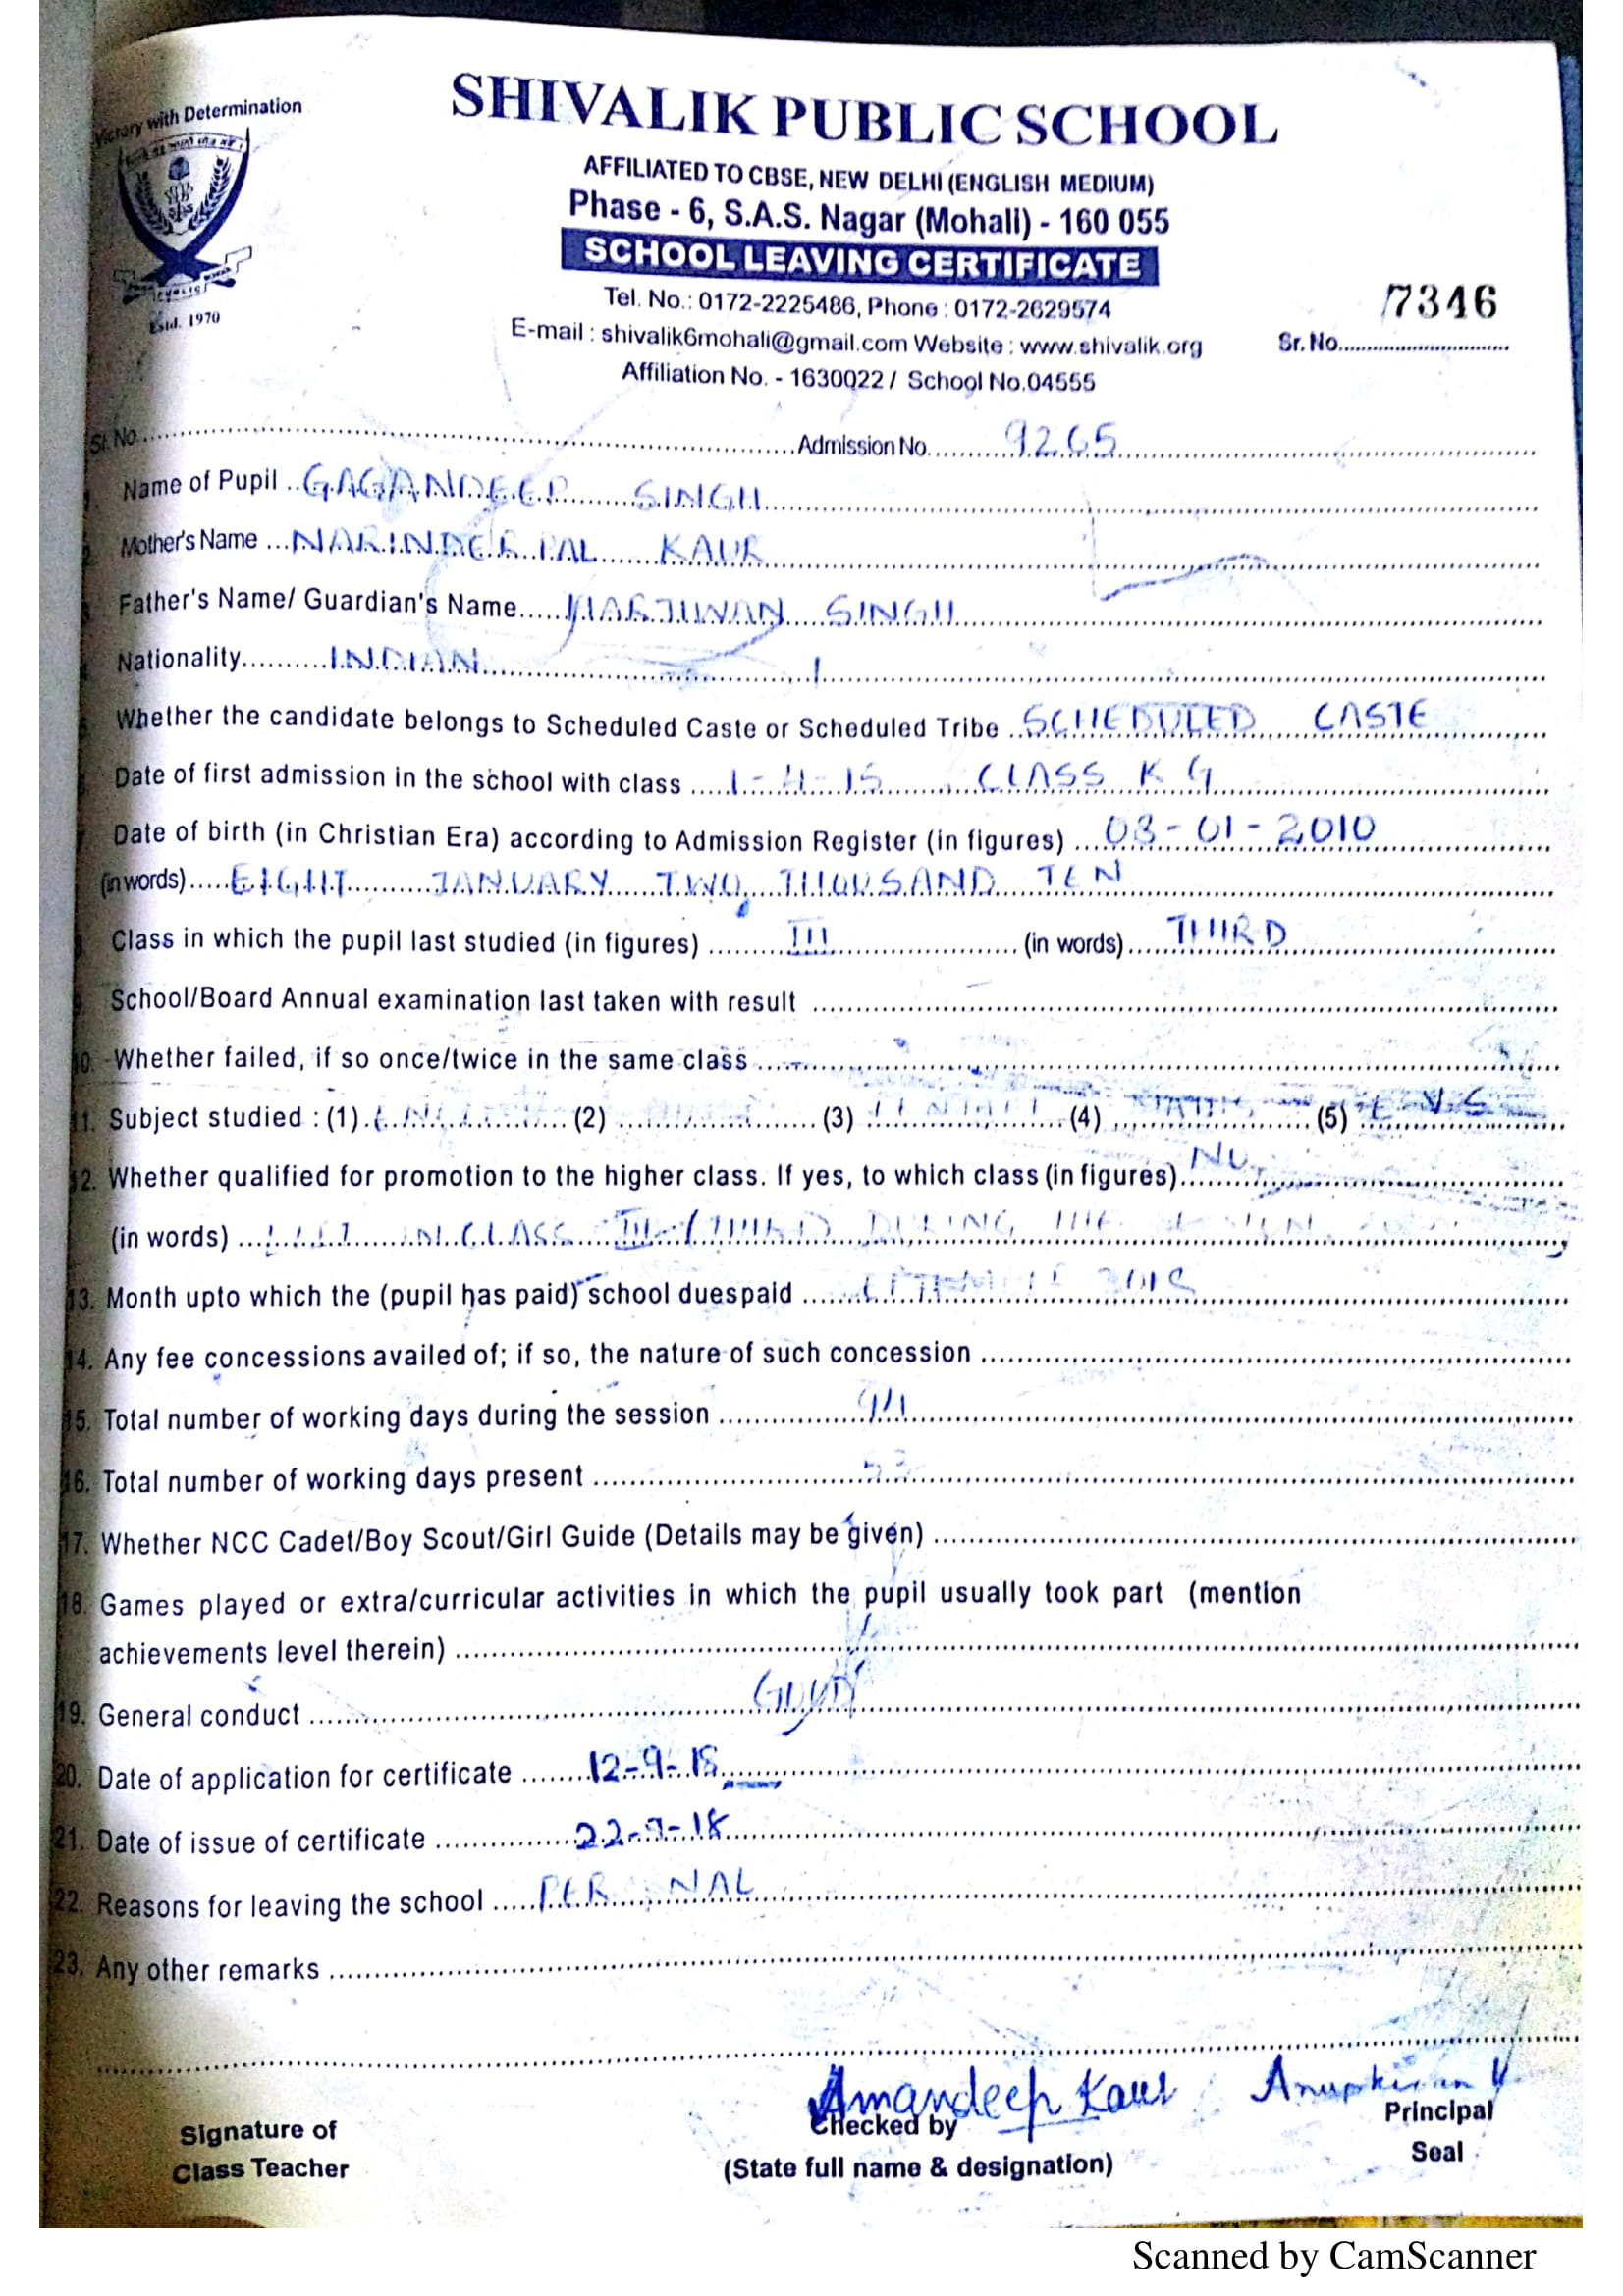 Victory with Determination
SHIVALIK PUBLIC SCHOOL
AFFILIATED TO CBSE, NEW DELHI (ENGLISH MEDIUM)
Phase - 6, S.A.S. Nagar (Mohali) - 160 055
SCHOOL LEAVING CERTIFICATE
Tel. No.: 0172-2225486, Phone : 0172-2629574
E-mail : shivalik6mohali@gmail.com Website : www.shivalik.org
Affiliation No. - 1630022 / School No.04555
Estd. 1970
7346
Sr. No.
Sl. No. Admission No. 9265
Name of Pupil GAGANDEEP SINGH
Mother's Name NARINDER PAL KAUR
Father's Name/ Guardian's Name HARJIWAN SINGH
Nationality INDIAN
Whether the candidate belongs to Scheduled Caste or Scheduled Tribe SCHEDULED CASTE
Date of first admission in the school with class 1-4-15 CLASS KG
Date of birth (in Christian Era) according to Admission Register (in figures) 08-01-2010
(in words) EIGHT JANUARY TWO THOUSAND TEN
Class in which the pupil last studied (in figures) III (in words) THIRD
School/Board Annual examination last taken with result
10. Whether failed, if so once/twice in the same class
11. Subject studied : (1) (2) (3) (4) MATHS (5) E.V.S
12. Whether qualified for promotion to the higher class. If yes, to which class (in figures) NO,
(in words) IN CLASS III (THIRD) DURING THE
13. Month upto which the (pupil has paid) school duespaid 2018
14. Any fee concessions availed of; if so, the nature of such concession
15. Total number of working days during the session
16. Total number of working days present
17. Whether NCC Cadet/Boy Scout/Girl Guide (Details may be given)
18. Games played or extra/curricular activities in which the pupil usually took part (mention
achievements level therein)
19. General conduct Good
20. Date of application for certificate 12-9-18
21. Date of issue of certificate 22-9-18
22. Reasons for leaving the school PERSONAL
23. Any other remarks
Amandeep Kaur
Signature of
Class Teacher
Checked by
(State full name & designation)
Principal
Seal
Scanned by CamScanner